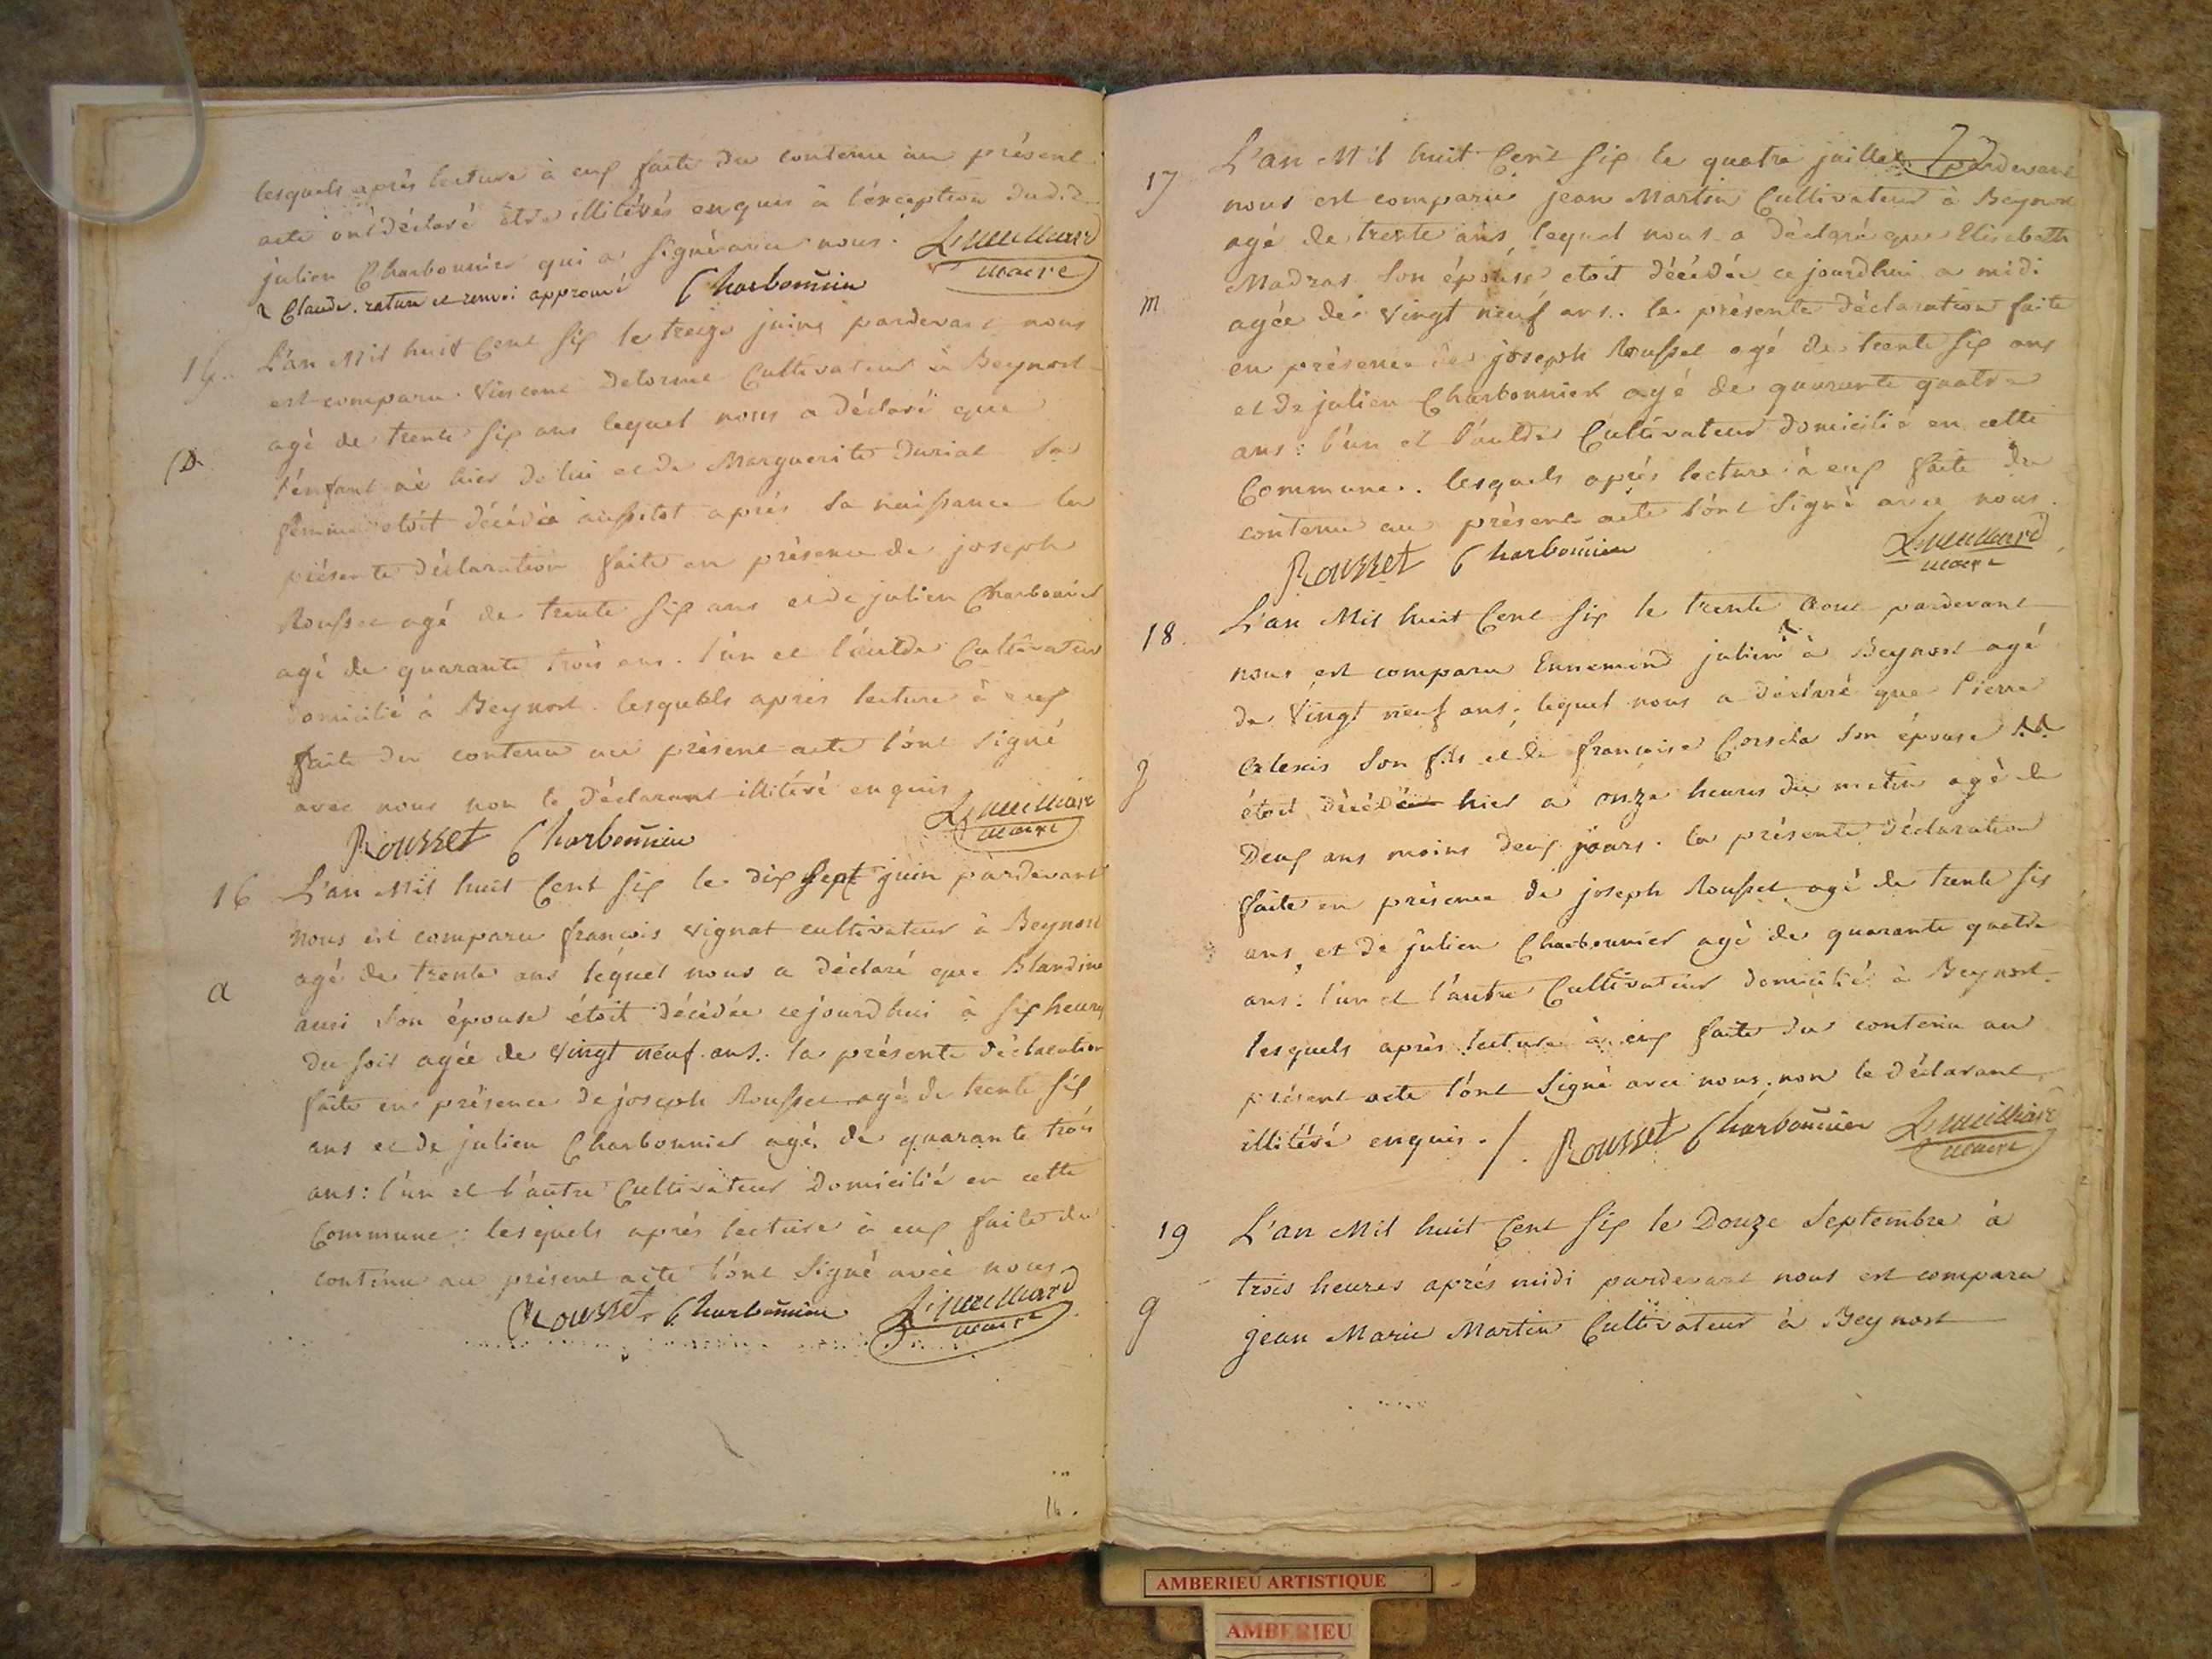 lesquels après lecture à eux faite du contenu au présent
acte ont déclaré être illitérés enquis à l'exception dudit
julien Charbonnier qui a signé avec nous.
Claude. rature et renvoi approuvé Charbonnier maire
L'an Mil huit Cent six le treize juin pardevant nous
est comparu Vincent Delorme Cultivateur à Beynost
agé de trente six ans lequel nous a déclaré que
D
l'enfant né hier de lui et de Marguerite Duriat sa
femme étoit décédé aussitot après sa naissance la
présente déclaration faite en présence de joseph
Rousset agé de trente six ans et de julien Charbonnier
agé de quarante trois ans. l'un et l'autre Cultivateur
domicilié à Beynost. lesquels après lecture à eux
faite du contenu au présent acte l'ont signé
avec nous non le déclarant illitéré enquis
Rousset Charbonnier maire
16 L'an Mil huit Cent six le dix sept juin pardevant
nous est comparu françois vignat cultivateur à Beynost
agé de trente ans lequel nous a déclaré que Blandine
a
son épouse étoit décédée cejourdhui à six heures
du soir agée de vingt neuf ans. la présente déclaration
faite en présence de joseph Rousset agé de trente six
ans et de julien Charbonnier agé de quarante trois
ans: l'un et l'autre Cultivateur Domicilié en cette
Commune: lesquels après lecture à eux faite du
contenu au présent acte l'ont signé avec nous
Rousset Charbonnier maire
16.
17 L'an Mil huit Cent six le quatre juillet pardevant
nous est comparu jean Martin Cultivateur à Beynost
agé de trente ans lequel nous a déclaré que Elisabeth
Madras son épouse etoit décédée ce jourdhui a midi
m
agée de vingt neuf ans. la présente déclaration faite
en présence de joseph Rousset agé de trente six ans
et de julien Charbonnier agé de quarante quatre
ans: l'un et l'autre Cultivateur domicilié en cette
Commune. lesquels après lecture à eux faite du
contenu au présent acte l'ont signé avec nous.
Rousset Charbonnier maire
18. L'an Mil huit Cent six le trente aout pardevant
nous est comparu Ennemond julien à Beynost agé
de vingt neuf ans, lequel nous a déclaré que Pierre
alexis son fils et de françoise son épouse
j
étoit décédé hier à onze heures du matin agé de
Deux ans moins deux jours. la présente déclaration
faite en présence de joseph Rousset agé de trente six
ans et de julien Charbonnier agé de quarante quatre
ans: l'un et l'autre Cultivateur domicilié à Beynost
lesquels après lecture à eux faite du contenu au
présent acte l'ont signé avec nous, non le déclarant
illitéré enquis. /. Rousset Charbonnier maire
19 L'an Mil huit Cent six le Douze Septembre à
trois heures après midi pardevant nous est comparu
g
jean Marie Martin Cultivateur à Beynost
AMBERIEU ARTISTIQUE
AMBERIEU